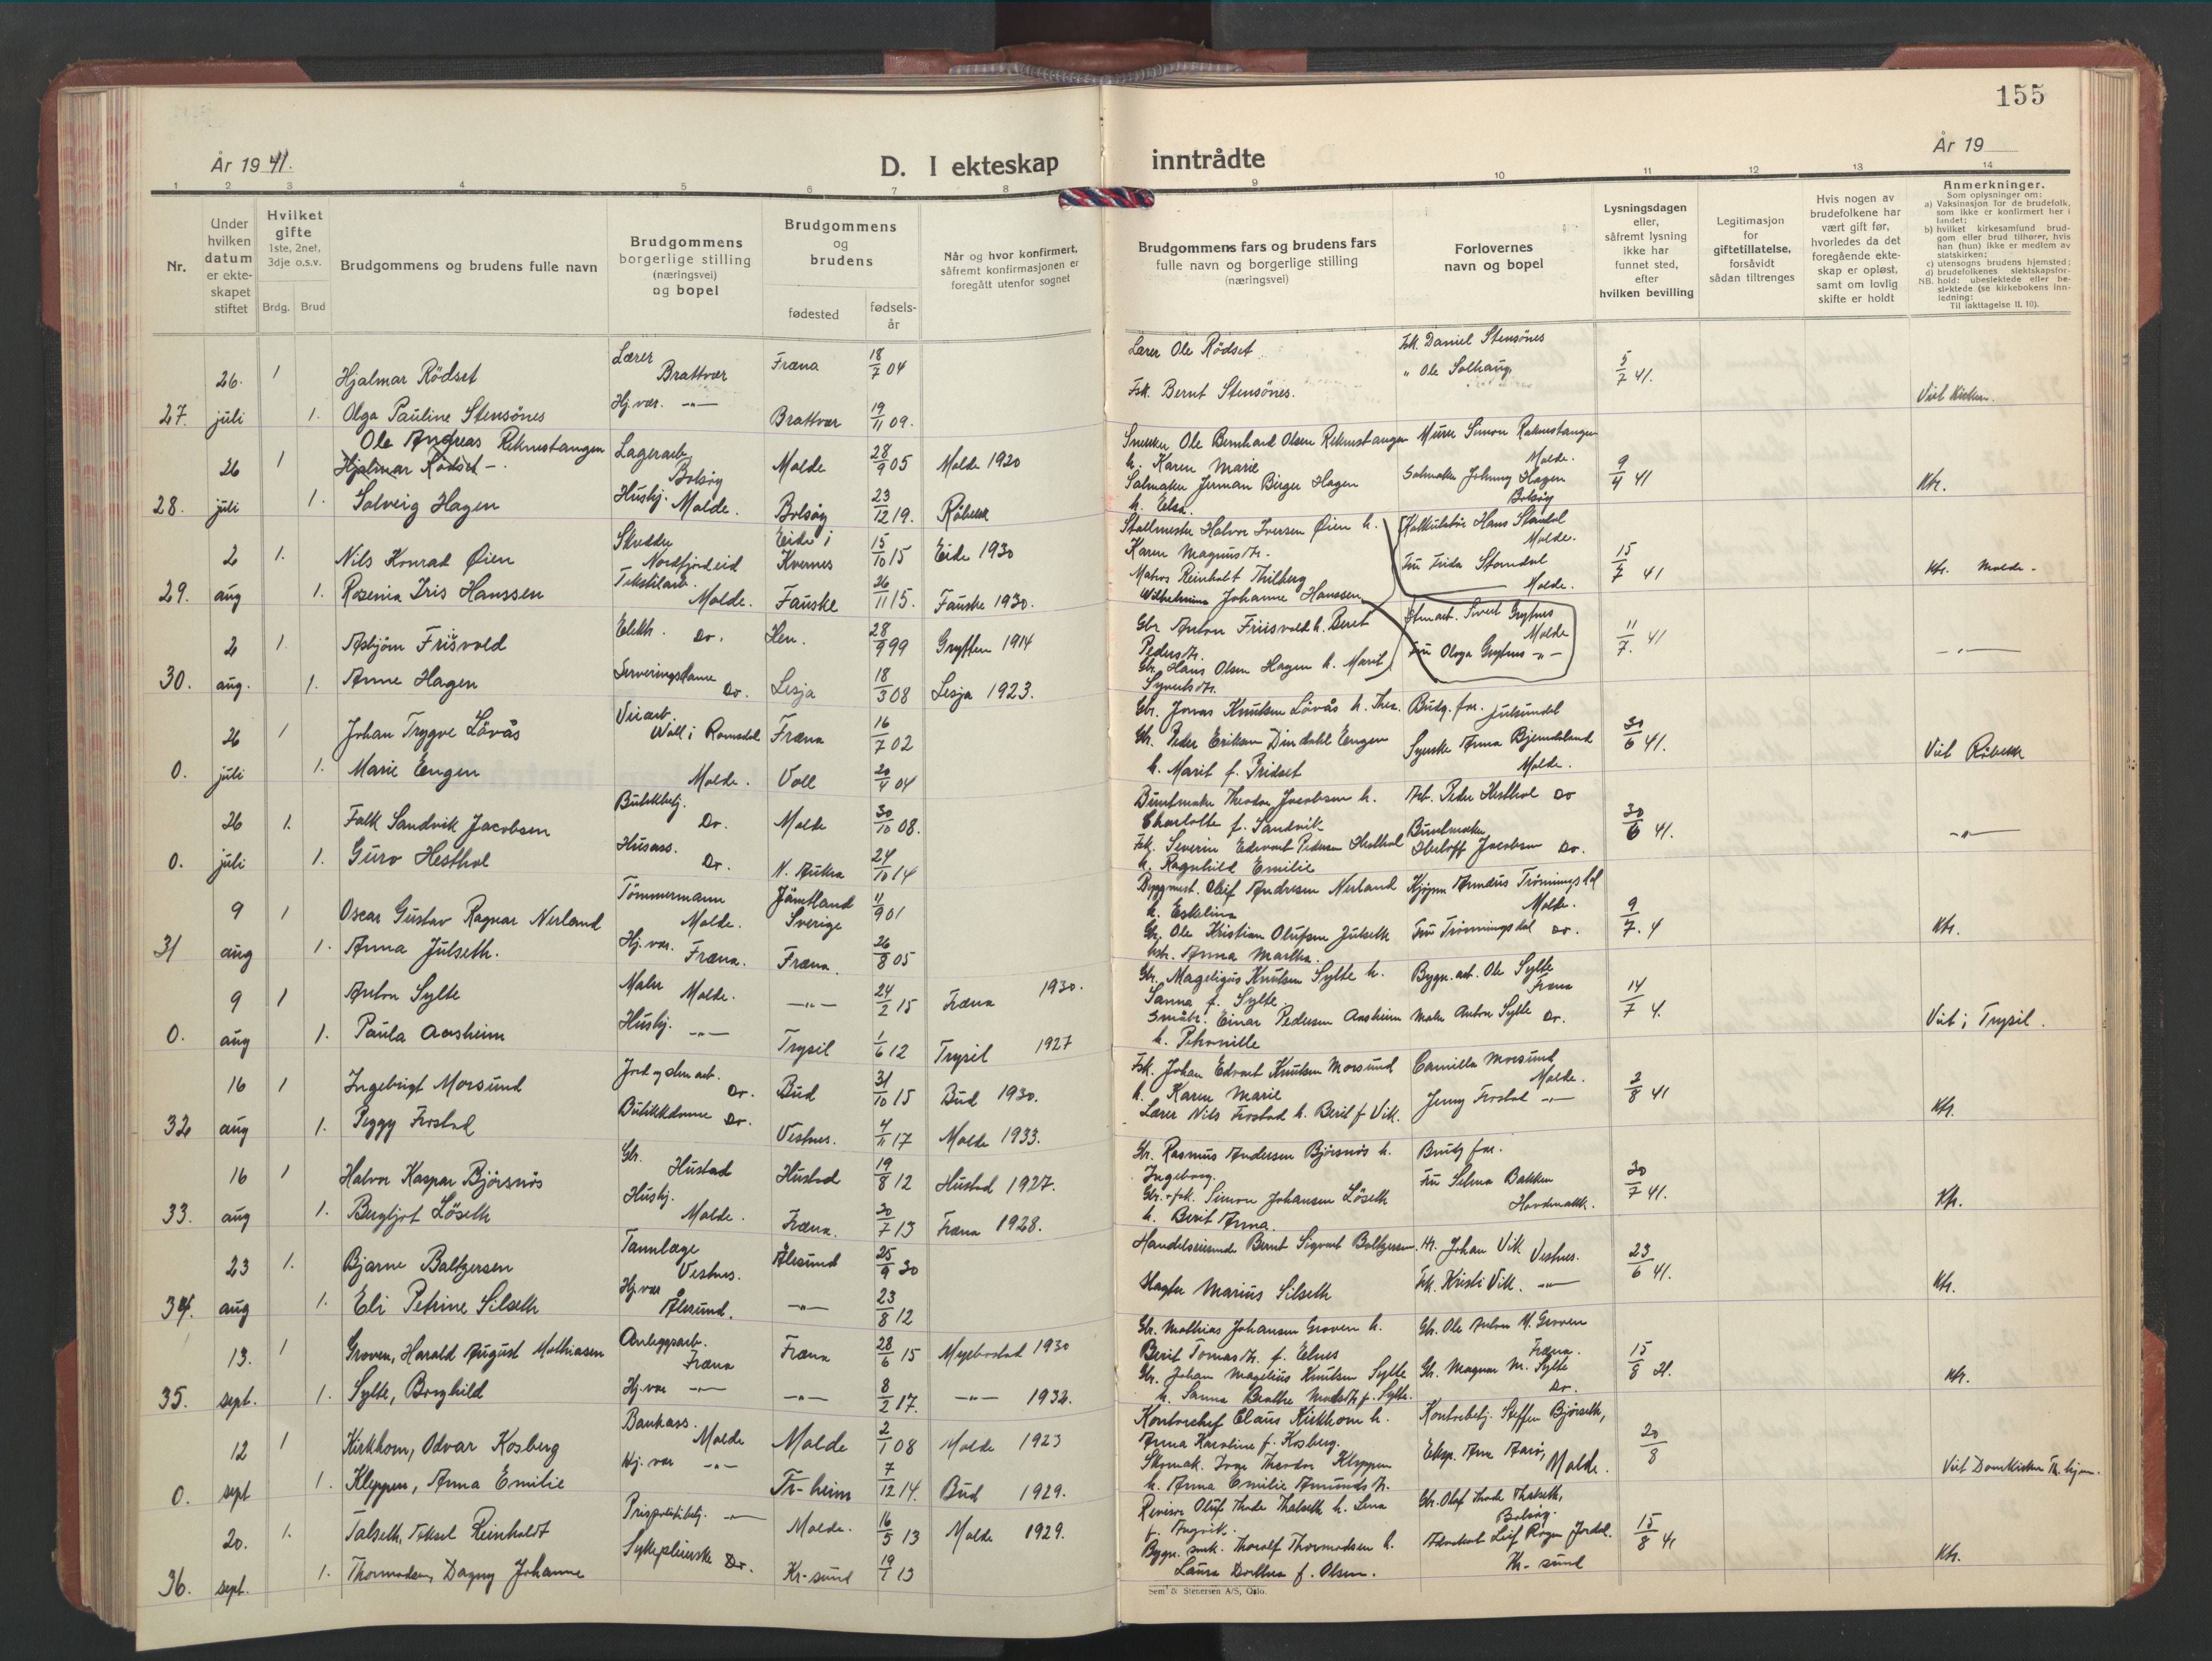 155
År 1941.
D. I ekteskap
inntrådte
År 19
1 2 3 4 5 6 7 8 9 10 11 12 13 14
Nr.
Under
hvilken
datum
er ekte-
skapet
stiftet
Hvilket
gifte
1ste, 2net,
3dje o.s.v.
Brdg. Brud
Brudgommens og brudens fulle navn
Brudgommens
borgerlige stilling
(næringsvei)
og bopel
Brudgommens
og
brudens
fødested
fødsels-
år
Når og hvor konfirmert,
såfremt konfirmasjonen er
foregått utenfor sognet
Brudgommens fars og brudens fars
fulle navn og borgerlige stilling
(næringsvei)
Forlovernes
navn og bopel
Lysningsdagen
eller,
såfremt lysning
ikke har
funnet sted,
efter
hvilken bevilling
Legitimasjon
for
giftetillatelse,
forsåvidt
sådan tiltrenges
Hvis nogen av
brudefolkene har
vært gift før,
hvorledes da det
foregående ekte-
skap er opløst,
samt om lovlig
skifte er holdt
Anmerkninger.
Som oplysninger om:
a) Vaksinasjon for de brudefolk,
som ikke er konfirmert her i
landet;
b) hvilket kirkesamfund brud-
gom eller brud tilhører, hvis
han (hun) ikke er medlem av
statskirken;
c) utensogns brudens hjemsted;
d) brudefolkenes slektskapsfor-
NB. hold: ubeslektede eller be-
slektede (se kirkebokens inn-
ledning:
Til iakttagelse II. 10).
26. 1 Hjalmar Rödset Lærer Brattvær Fræna 18/7 04 Lærer Ole Rödset Fsk. Daniel Stensönes 5/7 41.
" Ole Solhaug
27. juli 1. Olga Pauline Stensönes Hj.vær. -"- Brattvær 19/11 09. Fsk. Bernt Stensönes. Viet Kirken.
26 1 Ole Andreas Reknestangen Lagerarb. Bolsöy Molde 28/9 05 Molde 1920 Snekker Ole Bernhard Olsen Reknestangen Murer Simon Reknestangen Molde. 9/4 41
Hjalmar Rödset -.
h. Karen Marie
28. juli 1. Solveig Hagen Hushj. Molde. Bolsöy 23/12 19. Röbekk Salmaker Jerman Birger Hagen Salmaker Johnny Hagen Bolsöy Ktr.
h. Elsa.
2 1. Nils Konrad Øien Skredder Nordfjordeid Eide i Kvernes 15/10 15 Eide 1930 Stallmester Halvor Iversen Øien h. Hans Stomdal Molde. 15/7 41
Karen Magnusdtr.
29. aug 1. Rosenia Iris Hanssen Tekstilarb. Molde. Fauske 26/11 15. Fauske 1930. Matros Reinholt Thilberg Fru Frida Stomdal Molde. Ktr. Molde.
Wilhelmina Johanne Hanssen
2 1. Asbjörn Frisvold Elektr. Do. Hen. 28/9 99 Grytten 1914 Gbr Anton Friisvold h. Beret Sivert Grytnes Molde 11/7. 41
Pedersdtr.
30. aug. 1. Anne Hagen Serveringsdame Do. Lesja 18/3 08 Lesja 1923. Gbr. Hans Olsen Hagen h. Marit Fru Olga Grytnes -"- -"-
Syvertsdtr.
26 1 Johan Trygve Lövås Veiarb. Voll i Romsdal Fræna 16/7 02 Gbr. Jonas Knutsen Lövås h. Thea. Budg. far. Julsundet 30/6 41.
0. juli 1. Marie Engen Molde. Voll 20/4 04 Gbr. Peder Eriksen Dindahl Engen Syerske Anna Bjerndeland Molde. Viet Röbekk
h. Marit f. Fridset
26 1. Falk Sandvik Jacobsen Butikkbetj. Do. Molde 30/10 08. Buntmaker Theodor Jacobsen h. Arb. Peder Hesthol Do 30/6 41.
Charlotte f. Sandvik
0. juli 1. Guro Hesthol Husass. Do. N. Aukra 24/10 14 Fsk. Severin Edevart Pedersen Hesthol Buntmaker Herloff Jacobsen Do. -"-
h. Ragnhild Emilie
9 1 Oscar Gustav Ragnar Nerland Tömmermann Molde. Jämtland Sverige 11/9 01 Byggmest. Olaf Andresen Nerland Kjöpm Amandus Trönningsdal Molde. 9/7. 4
h. Eskelina
31 aug 1. Anna Julseth. Hj.vær. Fræna. Fræna. 26/8 05 Gbr. Ole Kristian Olufsen Julseth Fru Trönningsdal Do. Ktr.
hstr. Anna Martha.
9 1 Anton Sylte Maler Molde. -"- 24/2 15 Fræna 1930. Gbr. Mageligus Knutsen Sylte h. Bygn.arb. Ole Sylte Fræna 14/7 4.
Sanna f. Sylte.
0. aug 1. Paula Aasheim Hushj. -"- Trysil 1/6 12 Trysil 1927 Småbr. Einar Pedersen Aasheim Maler Anton Sylte Do. Viet i Trysil.
h. Petronille
16 1 Ingebrigt Morsund Jord og sten arb. Do. Bud 31/10 15 Bud 1930. Fsk. Johan Edvart Knutsen Morsund Camilla Morsund Molde. 2/8 41
h. Karen Marie
32 aug 1. Peggy Frostad Butikkdame Do. Vestnes. 4/11 17 Molde 1933. Lærer Nils Frostad h. Beril f Vik. Jenny Frostad -"- Ktr.
16 1 Halvor Kaspar Björsnös Gbr. Hustad Hustad 19/8 12 Hustad 1927. Gbr. Rasmus Andersen Björsnös h. Brudg far. 30/7 41.
Ingeborg.
33. aug 1. Bergljot Löseth Hushj. Molde. Fræna. 30/7 13 Fræna 1928. Gbr. + fsk. Simon Johansen Löseth Fru Selma Bakken Ktr.
h. Berit Anna.
23 1. Bjarne Baltzersen Tannlæge Vestnes. Ålesund 25/9 30 Handelsreisende Bernt Sigvart Baltzersen. Hr. Johan Vik Vestnes. 23/6 41.
34. aug 1. Eli Petrine Silseth Hj.vær Ålesund. -"- 23/8 12 Marius Silseth Frk. Kristi Vik. -"- Ktr.
13. 1 Groven, Harald August Mathiasen Anleggsarb. Fræna Fræna 28/6 15 Myrbostad 1930 Gbr. Mathias Johansen Groven h. Gbr. Ole Anton M. Groven Fræna. 15/8
Berit Tomasdtr. f. Eines
35. sept. 1. Sylte, Borghild Hj.vær -"- -"- 8/2 17. -"- 1932. Gbr. Johan Magelius Knutsen Sylte Gbr. Magnar M. Sylte Do. Ktr.
h. Sanna Beathe Madsdtr f. Sylte.
12 1 Kirkhorn, Odvar Kosberg Bankass. Molde Molde 2/1 08 Molde 1923 Kontorchef Claus Kirkhorn h. Kontorbetj. Steffen Björseth, 20/8
Anna Karoline f. Kosberg.
0. sept 1. Kleppen, Anna Emilie Hj. vær -"- Tr-heim 7/12 14. Bud 1929. Skomak. Inge Theodor Kleppen Eksp. Arne Aarö, Molde. Viet Domkirken Tr.hjem.
h. Anna Emilie Amundsdtr.
20. 1. Talseth, Aksel Reinholdt Prispolitibetj. -"- Molde. 16/5 13 Molde 1929. Revisor Oluf Thode Thalseth h. Lena Gbr. Olaf Thode Thalseth, Bolsöy. 15/8 41
36. sept. 1. Thormodsen, Dagny Johanne Sykepleierske Do. Kr-sund 19/1 13 Bygn. snk. Thoralf Thormodsen h. Advokat Leif Roger Jordal. Kr- sund Ktr.
Laura Dorthea f. Olsen.
Sem & Stenersen A/S, Oslo.